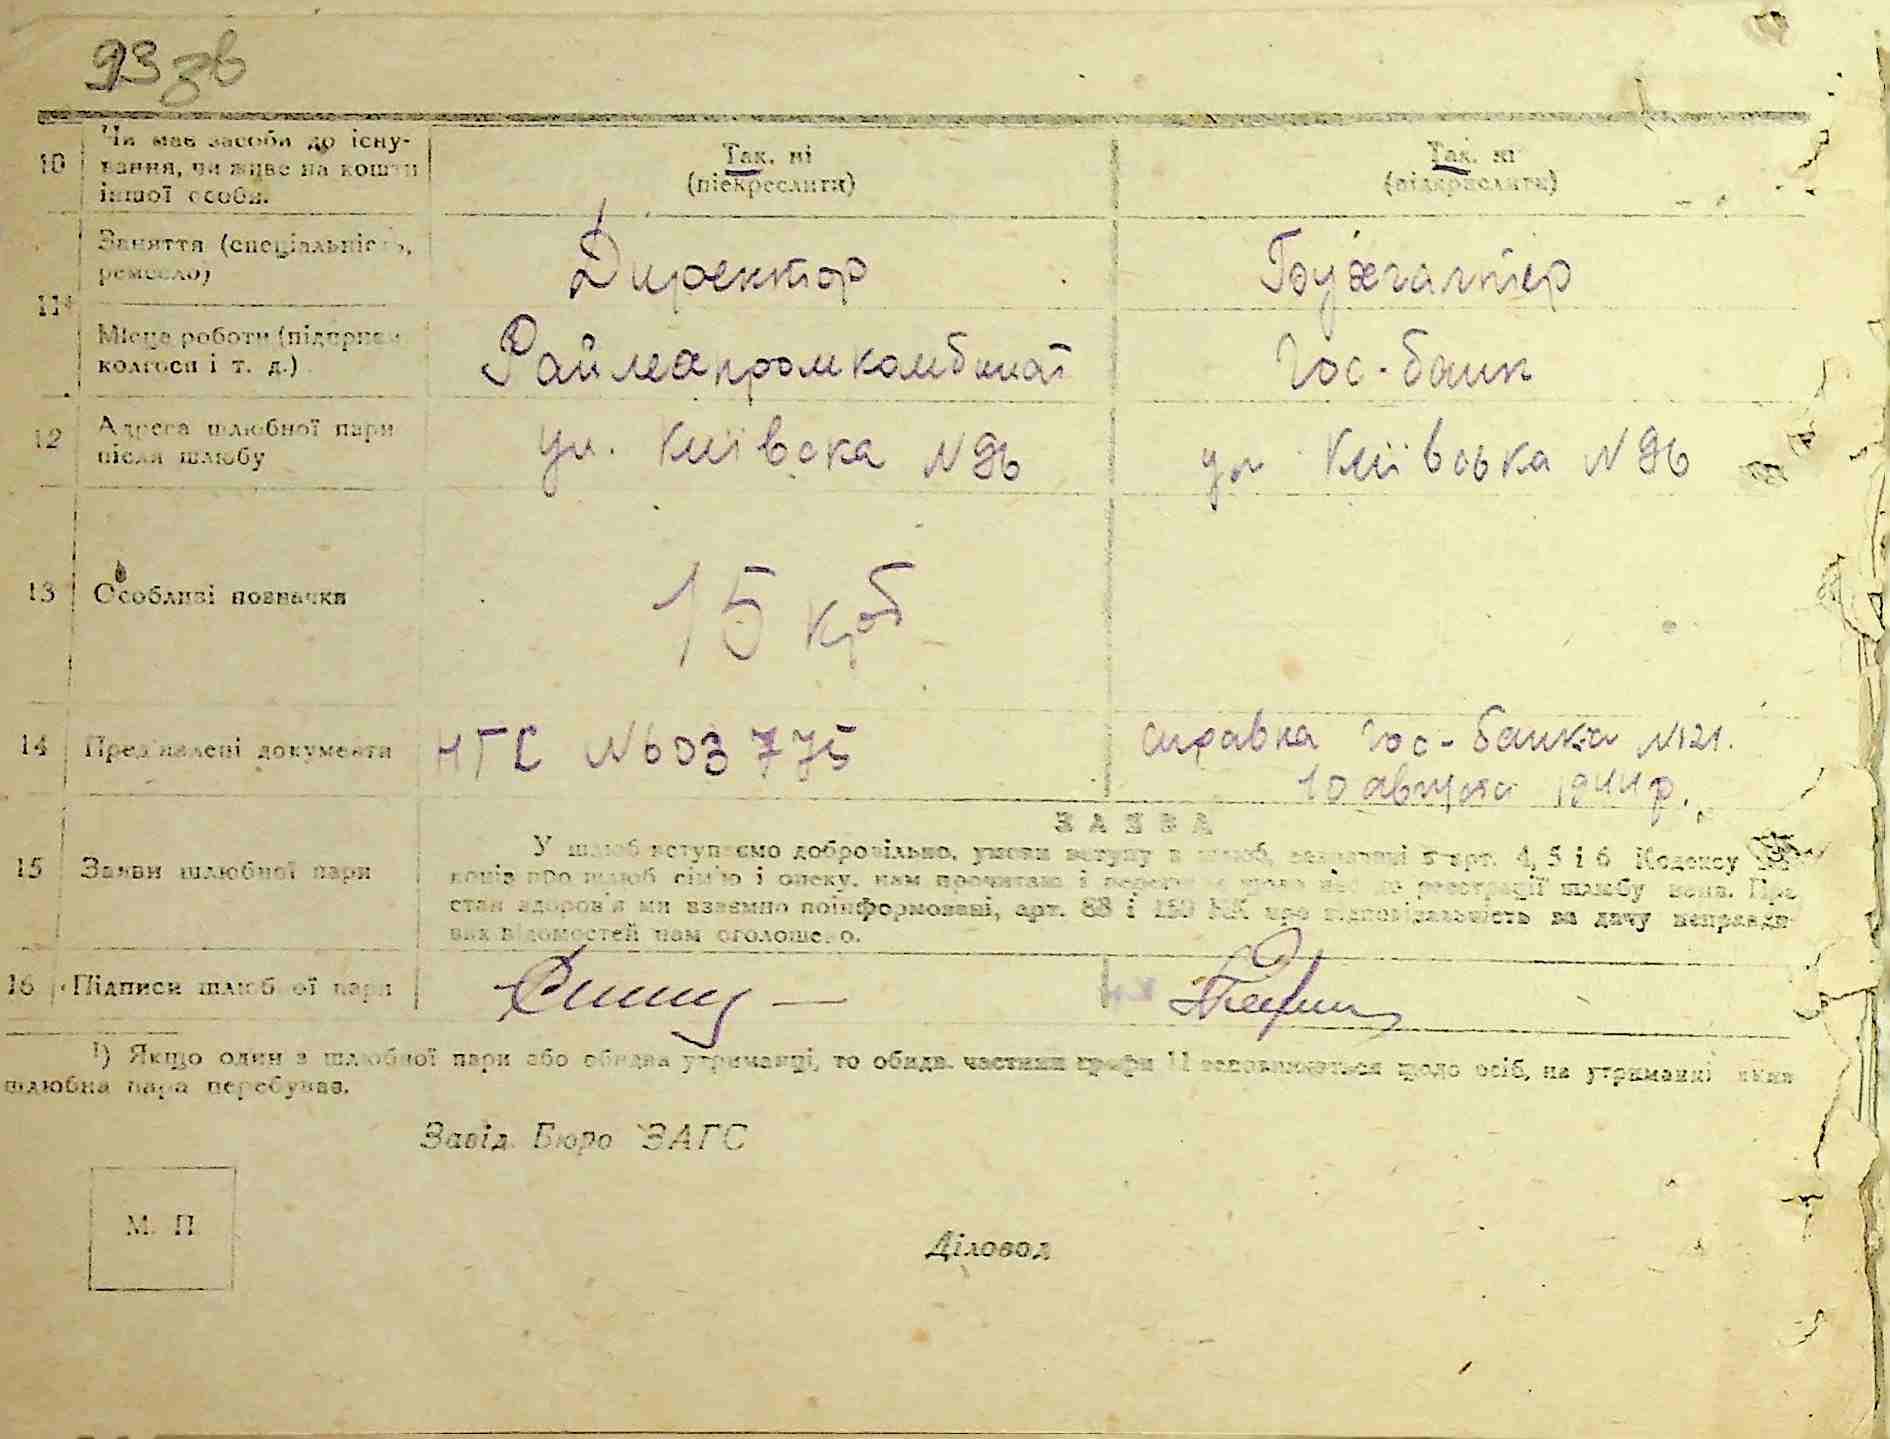 93 зв
10 Чи має засоби до існу-
вання, чи живе на кошти
іншої особи.
Так. ні
(підкреслити)
Так. ні
(підкреслити)
11
Заняття (спеціальність,
ремесло)
Директор
Бухгалтер
Місце роботи (підприєм
колгосп і т. д.)
Райлегпромкомбинат
Гос-банк
12 Адреса шлюбної пари
після шлюбу
ул. Київска N 96
ул Київська N 96
13 Особливі позначки
15 крб
14 Пред'явлені документи
НГС N603775
справка Гос-банка N121.
10 августа 1944 р.
15 Заяви шлюбної пари
ЗАЯВА
У шлюб вступаємо добровільно, умови вступу в шлюб, зазначені в арт. 4, 5 і 6 Кодексу за-
конів про шлюб сім'ю і опеку, нам прочитані і щодо нас до реєстрації шлюбу нема. Про
стан здоров'я ми взаємно поінформовані, арт. 88 і КК про відповідальність за дачу неправди-
вих відомостей нам оголошено.
16 Підписи шлюбної пари
¹) Якщо один з шлюбної пари або обидва утриманці, то обидві частини графи 11 заповнюються щодо осіб, на утриманні яких
шлюбна пара перебуває.
Завід. Бюро ЗАГС
М. П
Діловод